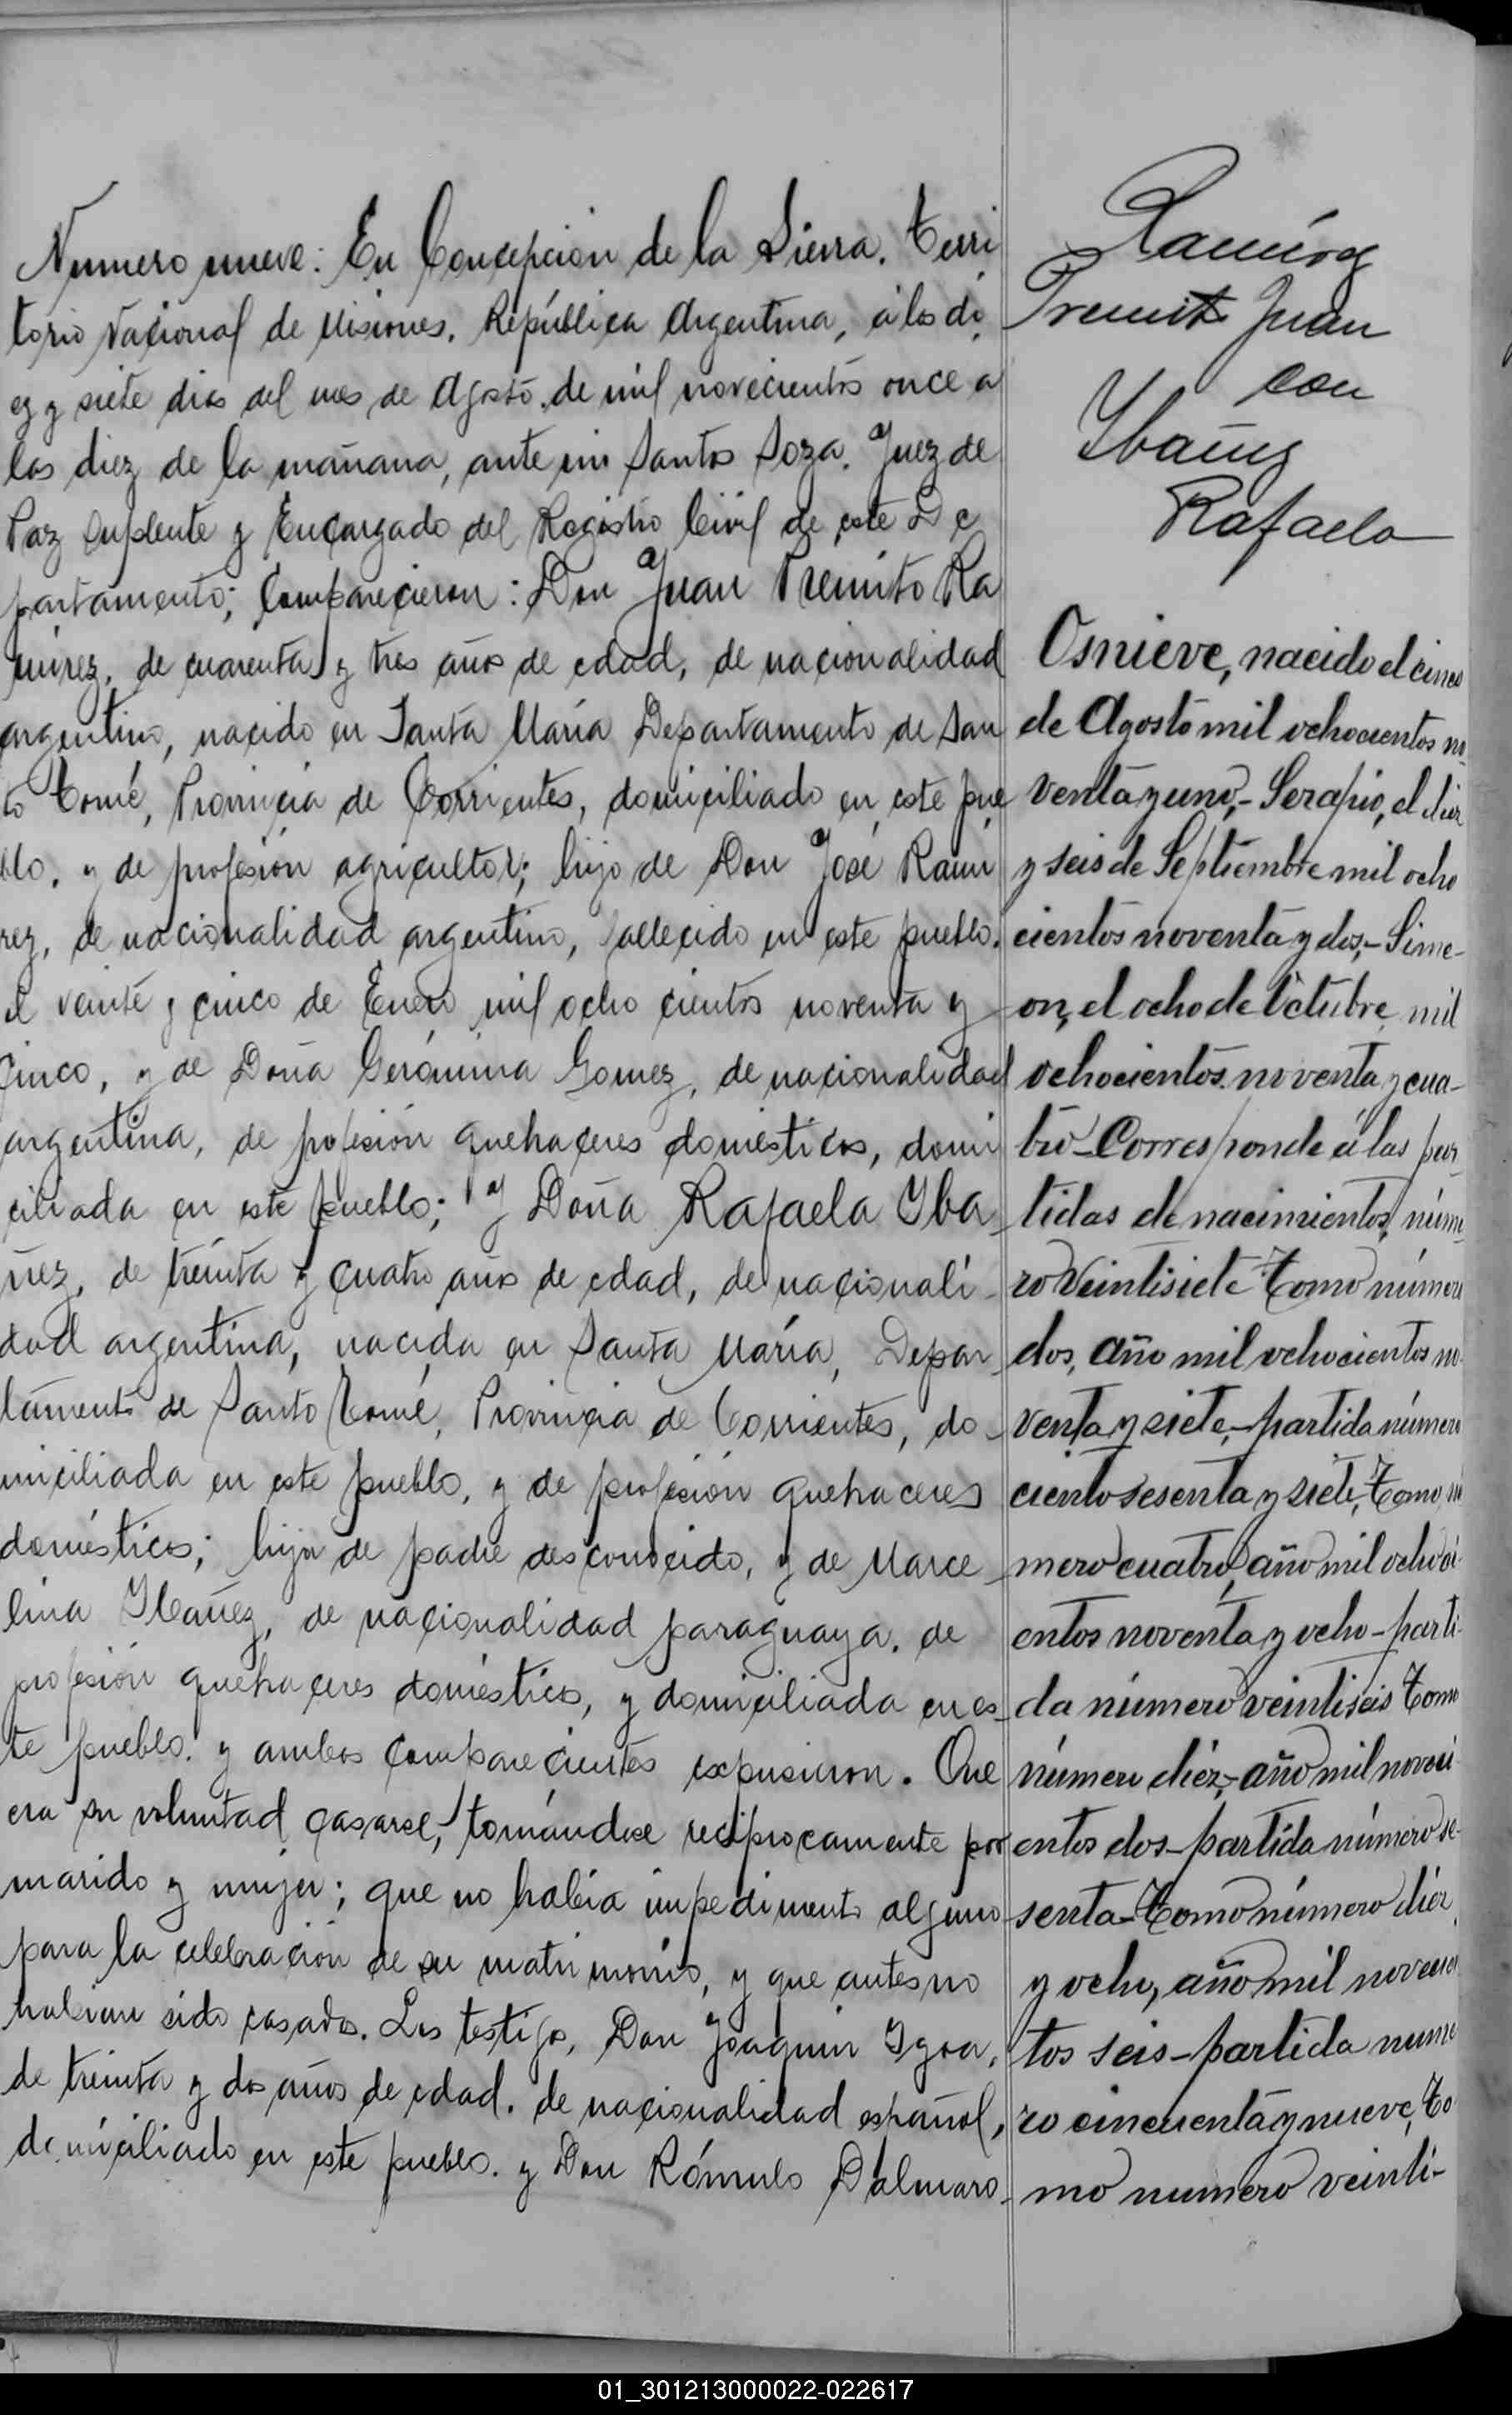 Numero nueve: En Concepcion de la Sierra, Terri
torio Nacional de Misiones, República Argentina, á los di
ez y siete dias del mes de Agosto de mil novecientos once a
las diez de la mañana, ante mi Santos Soza, Juez de
Paz Suplente y Encargado del Registro Civil de este De
partamento; Comparecieron: Don Juan Premito Ra
mirez, de cuarenta y tres años de edad, de nacionalidad
argentino, nacido en Santa María Departamento de San
to Tomé, Provincia de Corrientes, domiciliado en este pue
blo, y de profesión agricultor; hijo de Don José Rami
rez, de nacionalidad argentino, fallecido en este pueblo,
el veinte y cinco de Enero mil ocho cientos noventa y
cinco, y de Doña Gerónima Gomez, de nacionalidad
argentina, de profesión quehaceres domésticos, domi
ciliada en este pueblo; y Doña Rafaela Yba
ñez, de treinta y cuatro años de edad, de nacionali-
dad argentina, nacida en Santa María, Depar
tamento de Santo Tomé, Provincia de Corrientes, do-
miciliada en este pueblo, y de profesión quehaceres
domésticos; hija de padre desconocido, y de Marce
lina Ybañez, de nacionalidad paraguaya, de
profesión quehaceres domésticos, y domiciliada en es-
te pueblo. y ambos comparecientes expusieron. Que
era su voluntad casarse, tomándose reciprocamente por
marido y mujer; que no había impedimento alguno
para la celebración de su matrimonio, y que antes no
habian sido casados. Los testigos, Don Joaquin Ygoa,
de treinta y dos años de edad, de nacionalidad español,
domiciliado en este pueblo. y Don Rómulo Dalmaro-
Ramírez
Premito Juan
con
Ybañez
Rafaela
Osnieve, nacido el cinco
de Agosto mil ochocientos no
venta y uno,- Serapio, el diez
y seis de Septiembre mil ocho
cientos noventa y dos,- Sime-
on, el ocho de Octubre mil
ochocientos noventa y cua-
tro- Corresponde á las par
tidas de nacimientos, núme
ro Veintisiete Tomo número
dos, año mil ochocientos no
venta y siete,- partida número
ciento sesenta y siete, Tomo nú
mero cuatro, año mil ochoci
entos noventa y ocho- parti-
da número veintiseis Tomo
número diéz,- año mil noveci
entos dos- partida número se-
senta- Tomo número diéz
y ocho, año mil novecien
tos seis- partida nume
ro cincuenta y nueve, To
mo numero veinti-
01_301213000022-022617